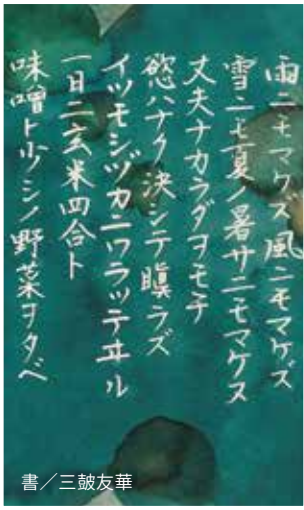 雨ニモマケズ風ニモマケズ
雪ニモ夏ノ暑サニモマケヌ
丈夫ナカラダヲモチ
慾ハナク決シテ瞋ラズ
イツモシヅカニワラッテヰル
一日ニ玄米四合ト
味噌ト少シノ野菜ヲタベ
書／三皷友華